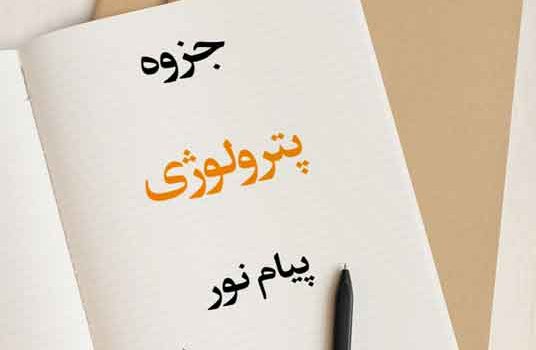 جزوه
پترولوژی
پیام نور